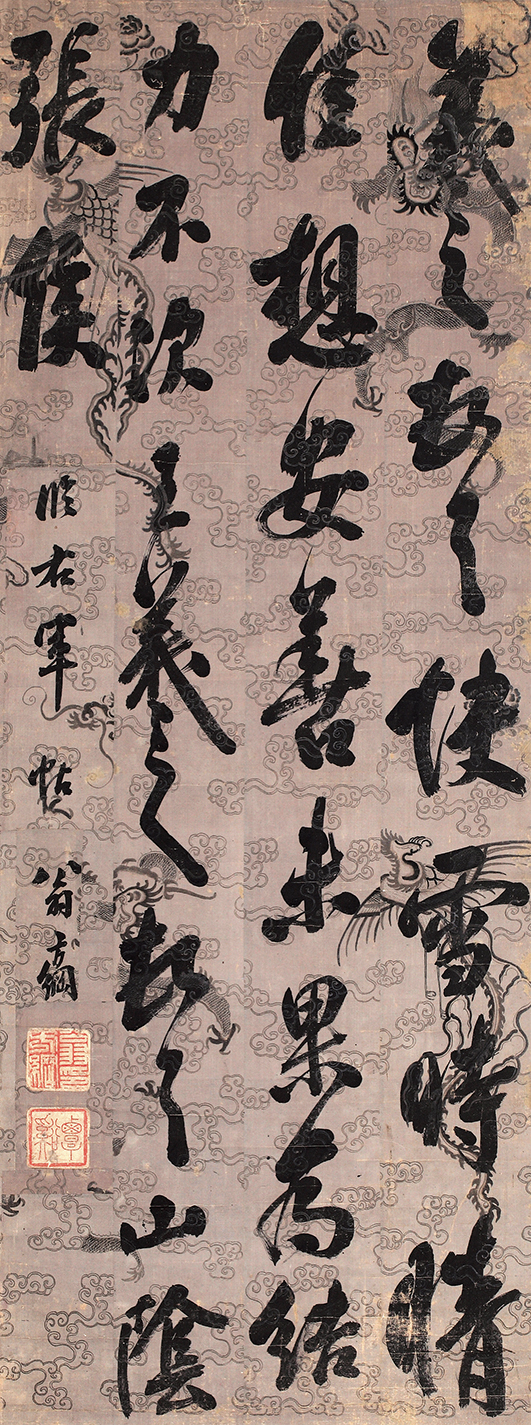 羲之頓首快雪時晴
佳想安善未果為結
力不次王羲之頓首山陰
張侯
臨右軍帖 翁方綱
覃谿